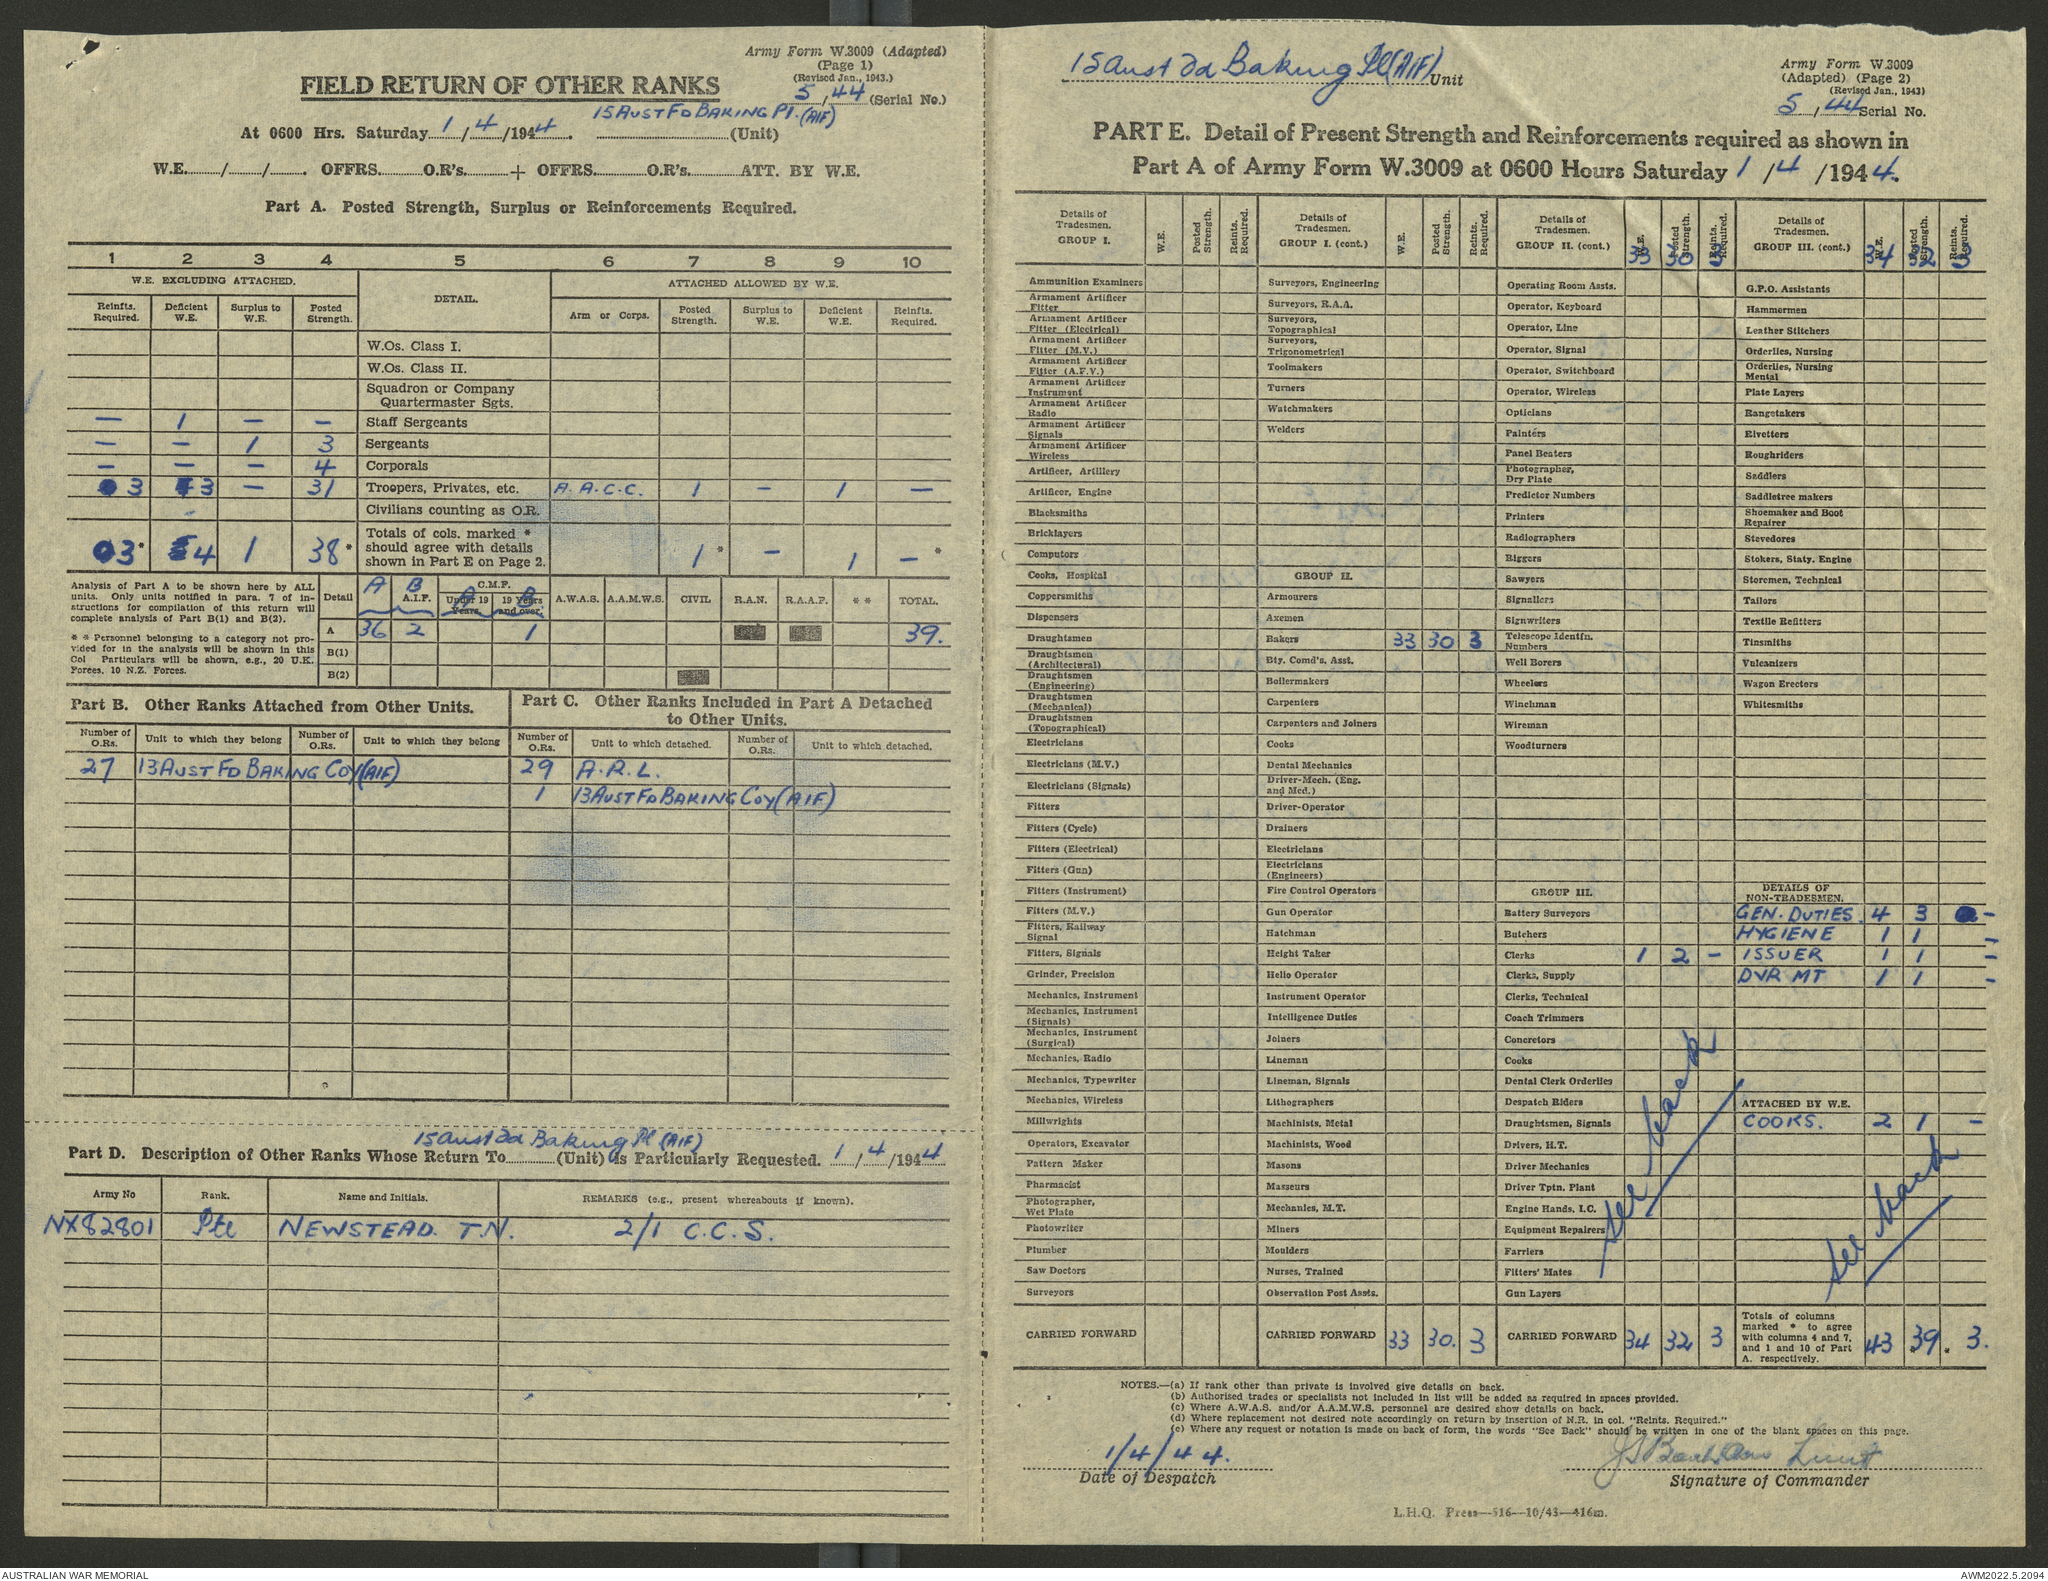 Army Form W.3009 (Adapted)
(Page 1)
(Revised Jan., 1943.)
FIELD RETURN OF OTHER RANKS
5/44 (Serial No.)
At 0600 Hrs. Saturday 1/4/1944. 15 AUST FD BAKING Pl. (AIF) (Unit)
W.E......./....../....... OFFRS..........O.R's.......... + OFFRS............O.R's............ ATT. BY W.E.
Part A. Posted Strength, Surplus or Reinforcements Required.
1 2 3 4 5 6 7 8 9 10
W.E. EXCLUDING ATTACHED. DETAIL. ATTACHED ALLOWED BY W.E.
Reinfts. Required. Deficient W.E. Surplus to W.E. Posted Strength. Arm or Corps. Posted Strength. Surplus to W.E. Deficient W.E. Reinfts. Required.
W.Os. Class I.
W.Os. Class II.
Squadron or Company
Quartermaster Sgts.
— 1 — — Staff Sergeants
— — 1 3 Sergeants
— — — 4 Corporals
3 3 — 31 Troopers, Privates, etc. A.A.C.C. 1 — 1 —
Civilians counting as O.R.
3* 4 1 38* Totals of cols. marked * should agree with details shown in Part E on Page 2. 1* — 1 —*
Analysis of Part A to be shown here by ALL
units. Only units notified in para. 7 of in-
structions for compilation of this return will
complete analysis of Part B(1) and B(2).
* * Personnel belonging to a category not pro-
vided for in the analysis will be shown in this
Col Particulars will be shown, e.g., 20 U.K.
Forces, 10 N.Z. Forces.
Detail A B A.I.F. C.M.F. Under 19 Years. A 19 Years and over. B A.W.A.S. A.A.M.W.S. CIVIL R.A.N. R.A.A.F. * * TOTAL.
A 36 2 1 39.
B(1)
B(2)
Part B. Other Ranks Attached from Other Units.
Number of O.Rs. Unit to which they belong Number of O.Rs. Unit to which they belong
27 13 AUST FD BAKING COY (AIF)
Part C. Other Ranks Included in Part A Detached
to Other Units.
Number of O.Rs. Unit to which detached. Number of O.Rs. Unit to which detached.
29 A.R.L.
1 13 AUST FD BAKING COY (AIF)
15 Aust Fd Baking Pl (AIF)
Part D. Description of Other Ranks Whose Return To.............(Unit) is Particularly Requested. 1/4/1944
Army No Rank. Name and Initials. REMARKS (e.g., present whereabouts if known).
NX82801 Pte NEWSTEAD. T.N. 2/1 C.C.S.
15 Aust Fd Baking Pl (AIF) Unit
Army Form W.3009
(Adapted) (Page 2)
(Revised Jan., 1943)
5/44 Serial No.
PART E. Detail of Present Strength and Reinforcements required as shown in
Part A of Army Form W.3009 at 0600 Hours Saturday 1/4/1944.
Details of Tradesmen. GROUP I. W.E. Posted Strength. Reints. Required.
Ammunition Examiners
Armament Artificer Fitter
Armament Artificer Fitter (Electrical)
Armament Artificer Fitter (M.V.)
Armament Artificer Fitter (A.F.V.)
Armament Artificer Instrument
Armament Artificer Radio
Armament Artificer Signals
Armament Artificer Wireless
Artificer, Artillery
Artificer, Engine
Blacksmiths
Bricklayers
Computors
Cooks, Hospital
Coppersmiths
Dispensers
Draughtsmen
Draughtsmen (Architectural)
Draughtsmen (Engineering)
Draughtsmen (Mechanical)
Draughtsmen (Topographical)
Electricians
Electricians (M.V.)
Electricians (Signals)
Fitters
Fitters (Cycle)
Fitters (Electrical)
Fitters (Gun)
Fitters (Instrument)
Fitters (M.V.)
Fitters, Railway Signal
Fitters, Signals
Grinder, Precision
Mechanics, Instrument
Mechanics, Instrument (Signals)
Mechanics, Instrument (Surgical)
Mechanics, Radio
Mechanics, Typewriter
Mechanics, Wireless
Millwrights
Operators, Excavator
Pattern Maker
Pharmacist
Photographer, Wet Plate
Photowriter
Plumber
Saw Doctors
Surveyors
CARRIED FORWARD
Details of Tradesmen. GROUP I. (cont.) W.E. Posted Strength. Reints. Required.
Surveyors, Engineering
Surveyors, R.A.A.
Surveyors, Topographical
Surveyors, Trigonometrical
Toolmakers
Turners
Watchmakers
Welders
GROUP II.
Armourers
Axemen
Bakers 33 30 3
Bty. Comd's. Asst.
Boilermakers
Carpenters
Carpenters and Joiners
Cooks
Dental Mechanics
Driver-Mech. (Eng. and Med.)
Driver-Operator
Drainers
Electricians
Electricians (Engineers)
Fire Control Operators
Gun Operator
Hatchman
Height Taker
Helio Operator
Instrument Operator
Intelligence Duties
Joiners
Lineman
Lineman, Signals
Lithographers
Machinists, Metal
Machinists, Wood
Masons
Masseurs
Mechanics, M.T.
Miners
Moulders
Nurses, Trained
Observation Post Assts.
CARRIED FORWARD 33 30. 3
Details of Tradesmen. GROUP II. (cont.) W.E. Posted Strength. Reints. Required.
33 30 3
Operating Room Assts.
Operator, Keyboard
Operator, Line
Operator, Signal
Operator, Switchboard
Operator, Wireless
Opticians
Painters
Panel Beaters
Photographer, Dry Plate
Predictor Numbers
Printers
Radiographers
Riggers
Sawyers
Signallers
Signwriters
Telescope Identfn. Numbers
Well Borers
Wheelers
Winchman
Wireman
Woodturners
GROUP III.
Battery Surveyors
Butchers
Clerks 1 2 —
Clerks, Supply
Clerks, Technical
Coach Trimmers
Concretors
Cooks
Dental Clerk Orderlies
Despatch Riders
Draughtsmen, Signals
Drivers, H.T.
Driver Mechanics
Driver Tptn. Plant
Engine Hands, I.C.
Equipment Repairers
Farriers
Fitters' Mates
Gun Layers
See back
CARRIED FORWARD 34 32 3
Details of Tradesmen. GROUP III. (cont.) W.E. Posted Strength. Reints. Required.
34 32 3
G.P.O. Assistants
Hammermen
Leather Stitchers
Orderlies, Nursing
Orderlies, Nursing Mental
Plate Layers
Rangetakers
Rivetters
Roughriders
Saddlers
Saddletree makers
Shoemaker and Boot Repairer
Stevedores
Stokers, Staty. Engine
Storemen, Technical
Tailors
Textile Refitters
Tinsmiths
Vulcanizers
Wagon Erectors
Whitesmiths
DETAILS OF NON-TRADESMEN.
GEN. DUTIES. 4 3 —
HYGIENE 1 1 —
ISSUER 1 1 —
DVR MT 1 1 —
ATTACHED BY W.E.
COOKS. 2 1 —
See back
Totals of columns marked * to agree with columns 4 and 7, and 1 and 10 of Part A. respectively. 43 39. 3.
NOTES.—(a) If rank other than private is involved give details on back.
(b) Authorised trades or specialists not included in list will be added as required in spaces provided.
(c) Where A.W.A.S. and/or A.A.M.W.S. personnel are desired show details on back.
(d) Where replacement not desired note accordingly on return by insertion of N.R. in col. "Reints. Required."
(e) Where any request or notation is made on back of form, the words "See Back" should be written in one of the blank spaces on this page.
1/4/44.
Date of Despatch
Signature of Commander
L.H.Q. Press—516—10/43—416m.
AUSTRALIAN WAR MEMORIAL
AWM2022.5.2094